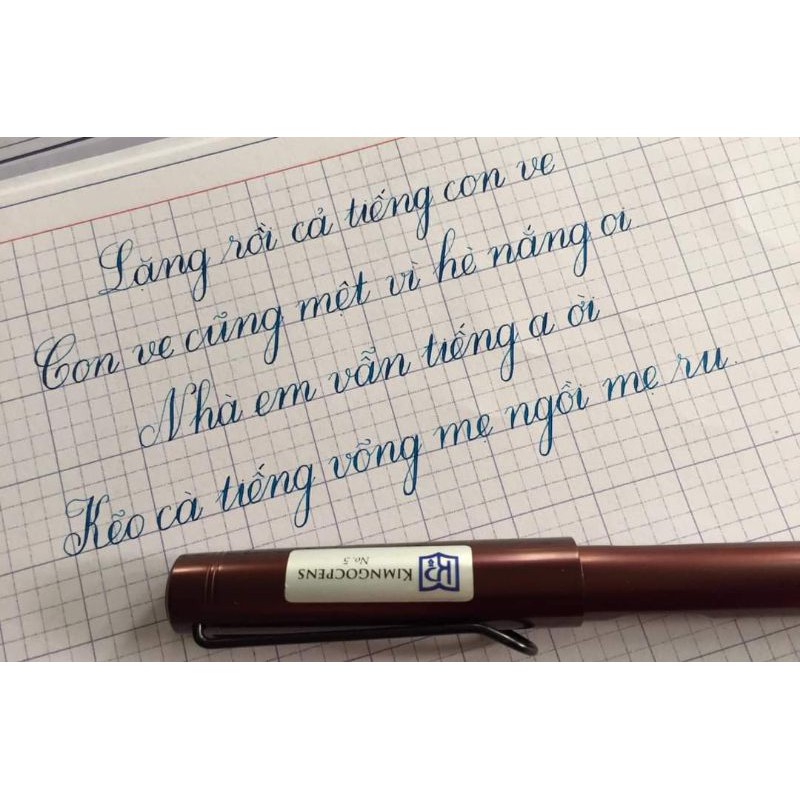 Lặng rồi cả tiếng con ve
Con ve cũng mệt vì hè nắng oi
Nhà em vẫn tiếng ạ ời
Kẽo cà tiếng võng mẹ ngồi mẹ ru
KIMNGOCPENS
No. 5